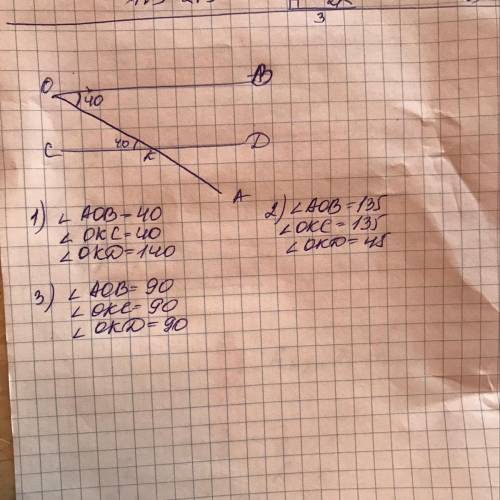 3
O
B
40
C
40
K
D
A
1) ∠ AOB = 40
∠ OKC = 40
∠ OKD = 140
2) ∠ AOB = 135
∠ OKC = 135
∠ OKD = 45
3) ∠ AOB = 90
∠ OKC = 90
∠ OKD = 90